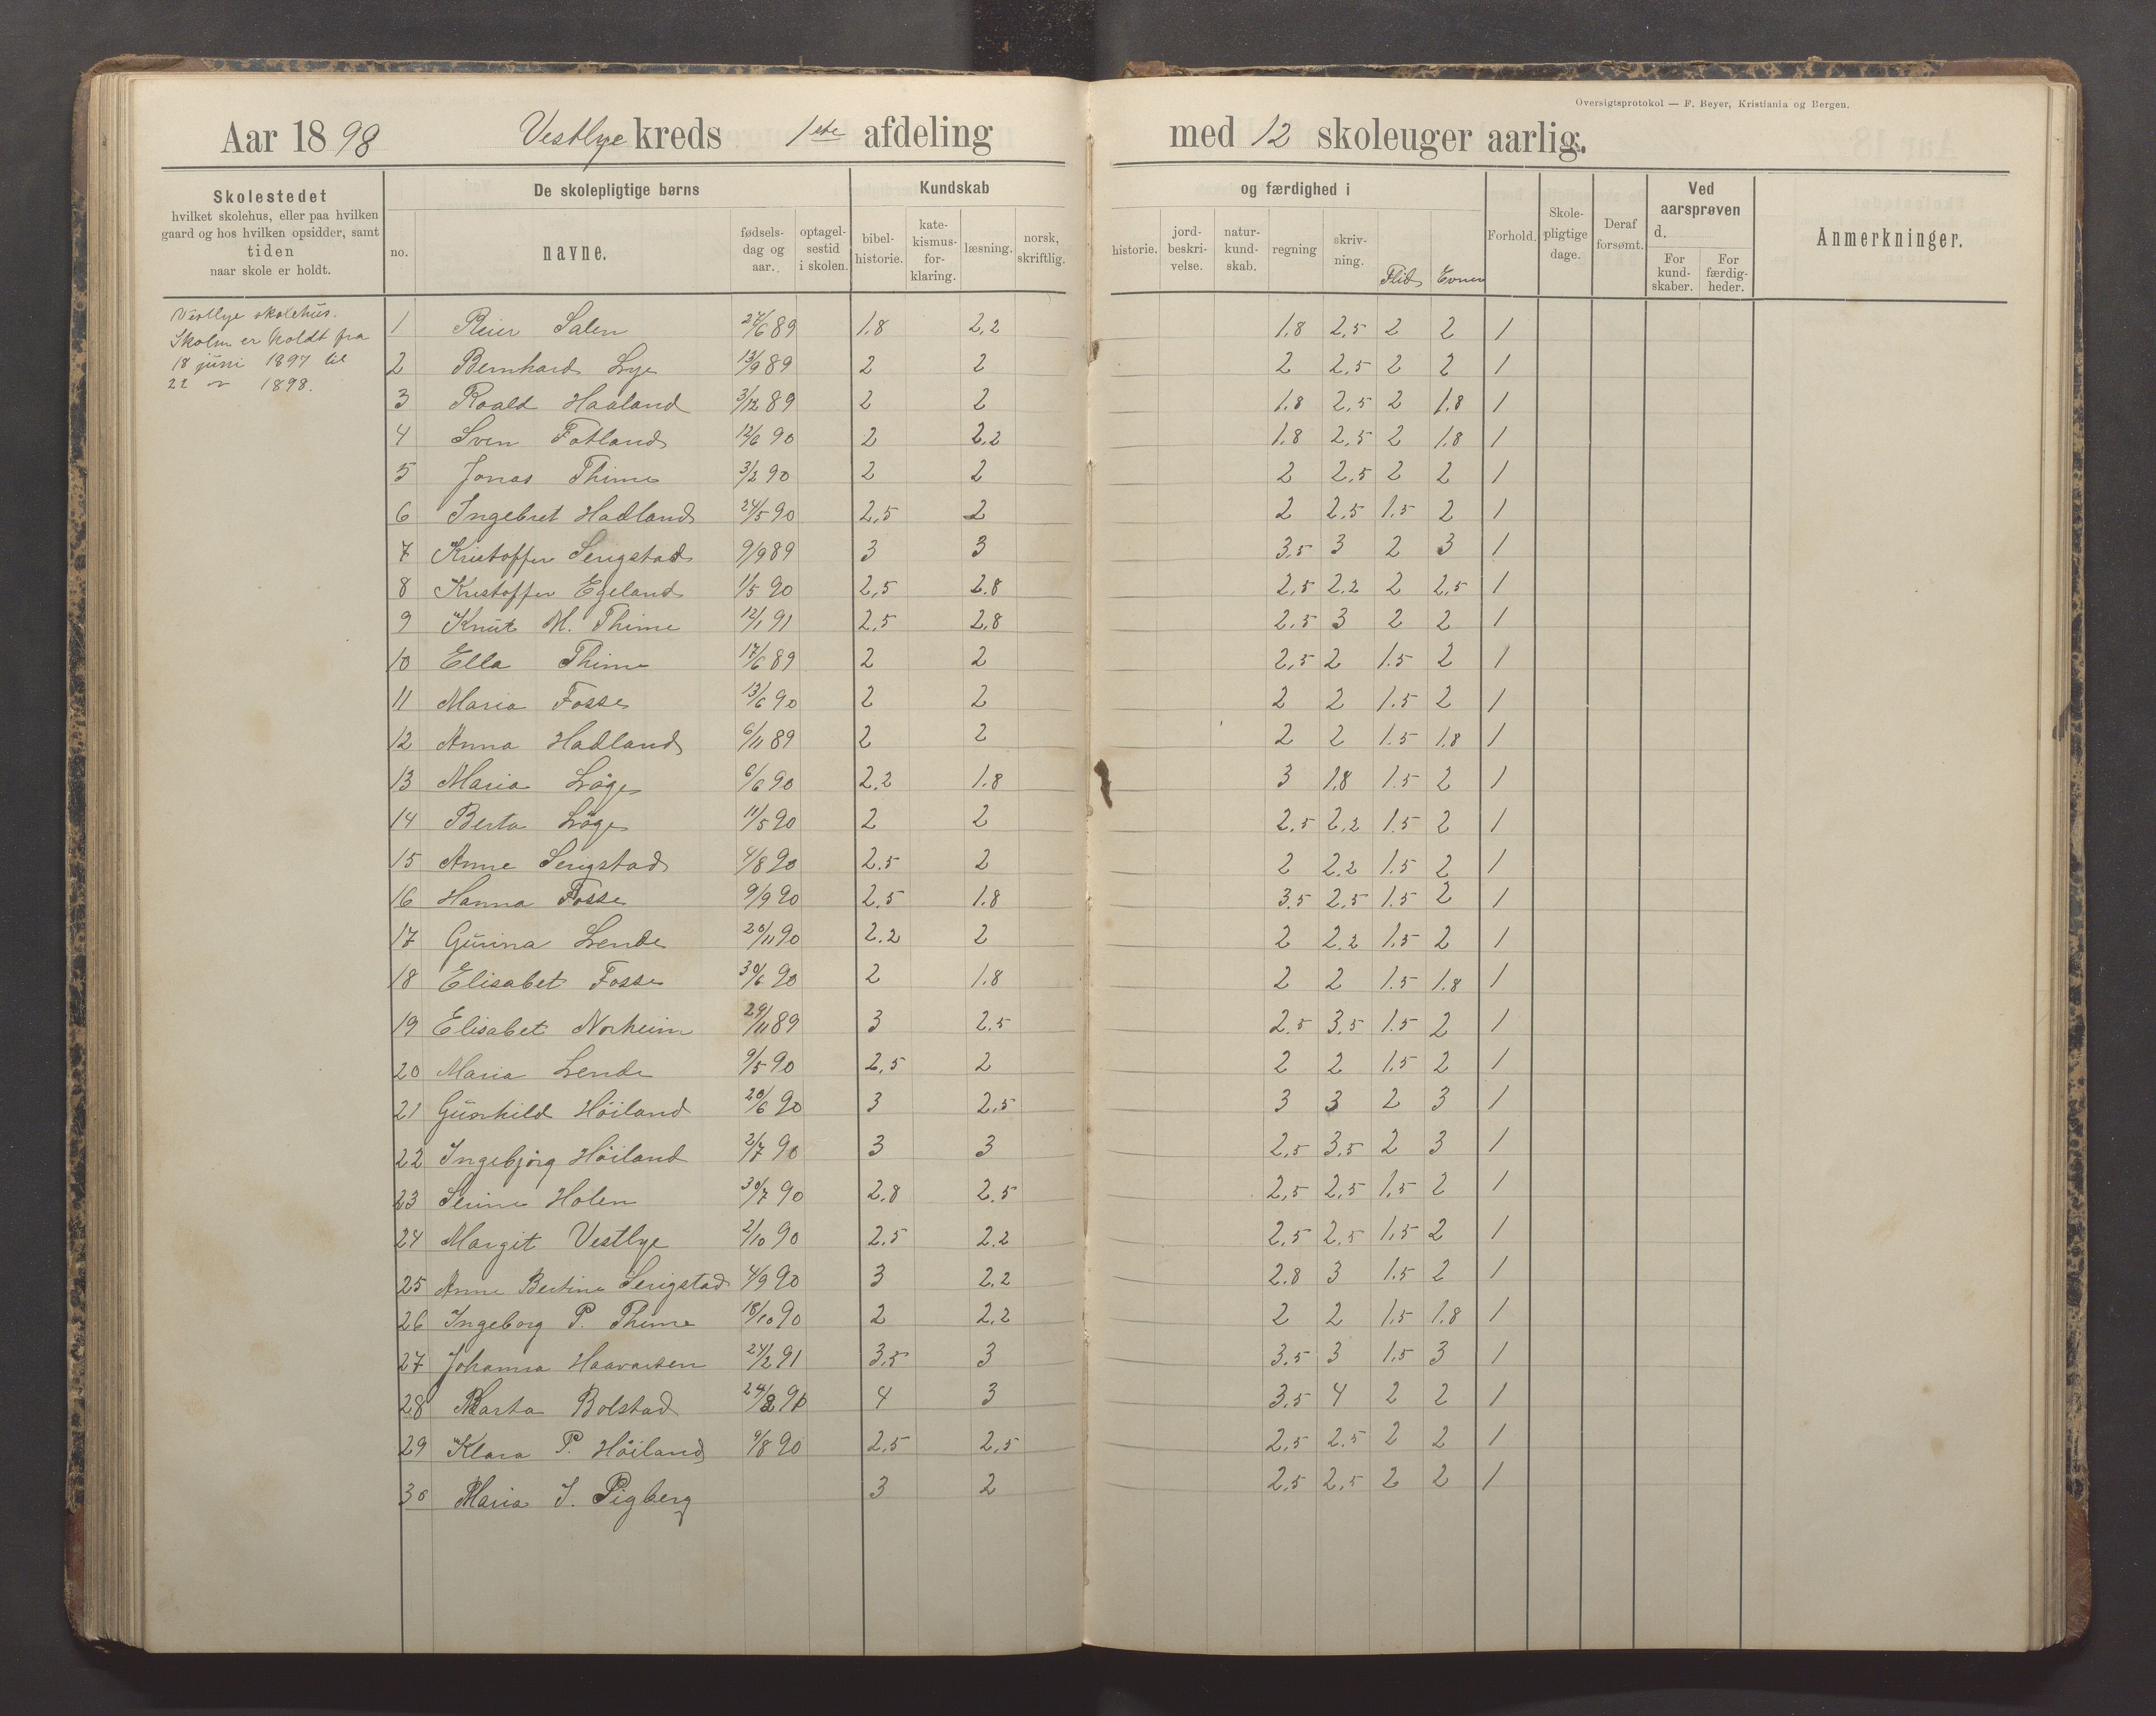 Oversigtsprotokol — F. Beyer, Kristiania og Bergen.
Aar 1898 Vestlye kreds 1ste afdeling med 12 skoleuger aarlig.
Skolestedet hvilket skolehus, eller paa hvilken gaard og hos hvilken opsidder, samt tiden naar skole er holdt.
De skolepligtige børns
no. navne. fødsels-dag og aar. optagel-sestid i skolen.
Kundskab og færdighed i
bibel-historie. kate-kismus-for-klaring. læsning. norsk, skriftlig. historie. jord-beskri-velse. natur-kund-skab. regning skriv-ning. Flid Evner
Forhold. Skole-pligtige dage. Deraf forsømt.
Ved aarsprøven d.
For kund-skaber. For færdig-heder.
Anmerkninger.
Vestlye skolehus.
Skolen er holdt fra
18 juni 1897 til
22 " 1898.
1 Reier Salen 24/6 89 1,8 2,2 1,8 2,5 2 2 1
2 Bernhard Lye 13/9 89 2 2 2 2,5 2 2 1
3 Roald Haaland 3/12 89 2 2 1,8 2,5 2 1,8 1
4 Sven Fotland 12/6 90 2 2,2 1,8 2,5 2 1,8 1
5 Jonas Thime 3/2 90 2 2 2 2,5 2 2 1
6 Ingebret Hadland 24/5 90 2,5 2 2 2,5 1.5 2 1
7 Kristoffer Serigstad 9/9 89 3 3 3,5 3 2 3 1
8 Kristoffer Egeland 11/5 90 2,5 2.8 2,5 2.2 2 2,5 1
9 Knut M. Thime 12/1 91 2,5 2,8 2,5 3 2 2 1
10 Ella Thime 17/6 89 2 2 2,5 2 1.5 2 1
11 Maria Fosse 13/6 90 2 2 2 2 1.5 2 1
12 Anna Hadland 6/11 89 2 2 2 2 1.5 1,8 1
13 Maria Løge 6/6 90 2,2 1.8 3 1,8 1.5 2 1
14 Berta Løge 11/5 90 2 2 2,5 2,2 1.5 2 1
15 Anne Serigstad 4/8 90 2.5 2 2 2.2 1.5 2 1
16 Hanna Fosse 9/9 90 2,5 1.8 3.5 2,5 1.5 2 1
17 Gurina Lende 20/11 90 2.2 2 2 2.2 1,5 2 1
18 Elisabet Fosse 30/6 90 2 1.8 2 2 1.5 1.8 1
19 Elisabet Norheim 29/11 89 3 2,5 2.5 3,5 1.5 2 1
20 Maria Lende 9/5 90 2,5 2 2 2 1.5 2 1
21 Gunhild Höiland 20/6 90 3 2,5 3 3 2 3 1
22 Ingebjørg Höiland 2/7 90 3 3 2,5 3,5 2 3 1
23 Serine Holen 30/7 90 2,8 2.5 2,5 2,5 1,5 2 1
24 Margit Vestlye 2/10 90 2,5 2.2 2,5 2.5 1,5 2 1
25 Anne Bertine Serigstad 4/9 90 3 2,2 2.8 3 1.5 2 1
26 Ingeborg P. Thime 18/10 90 2 2,2 2 2 1,5 1.8 1
27 Johanna Haavarsen 24/2 91 3,5 3 3.5 3 1.5 3 1
28 Marta Bolstad 24/2 91 4 3 3.5 4 2 2 1
29 Klara P. Höiland 9/8 90 2,5 2,5 2,5 2.5 2 2 1
30 Maria I. Pigberg 3 2 2.5 2,5 2 2 1